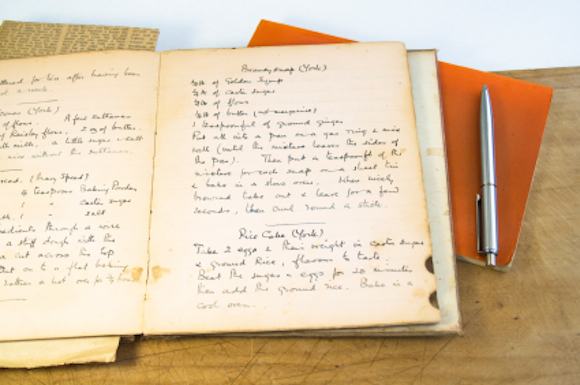 for tea after having been
a week.
(York)
of flour. A few sultanas
of Paisley flour, 2 oz of butter.
milk, a little sugar & salt
nice without the sultanas.
(Many Speed)
4 teaspoons Baking Powder
1 " castor sugar
1 " salt
through a sieve
a stiff dough with the
cut across the top
on to a flat baking
rather a hot oven for ½ hour
Brandysnap (York)
¼lb of Golden Syrup
¼lb of castor sugar
¼lb of flour
¼lb of butter (not margarine)
1 teaspoonful of ground ginger
Put all into a pan on a gas ring & mix
well (until the mixture leaves the sides of
the pan). Then put a teaspoonful of the
mixture for each snap on a sheet tin
& bake in a slow oven. When nicely
browned take out & leave for a few
seconds, then curl round a stick.
Rice Cake (York)
Take 2 eggs & their weight in castor sugar
& ground Rice, flavour to taste.
Beat the sugar & eggs for 20 minutes
then add the ground rice. Bake in a
cool oven.